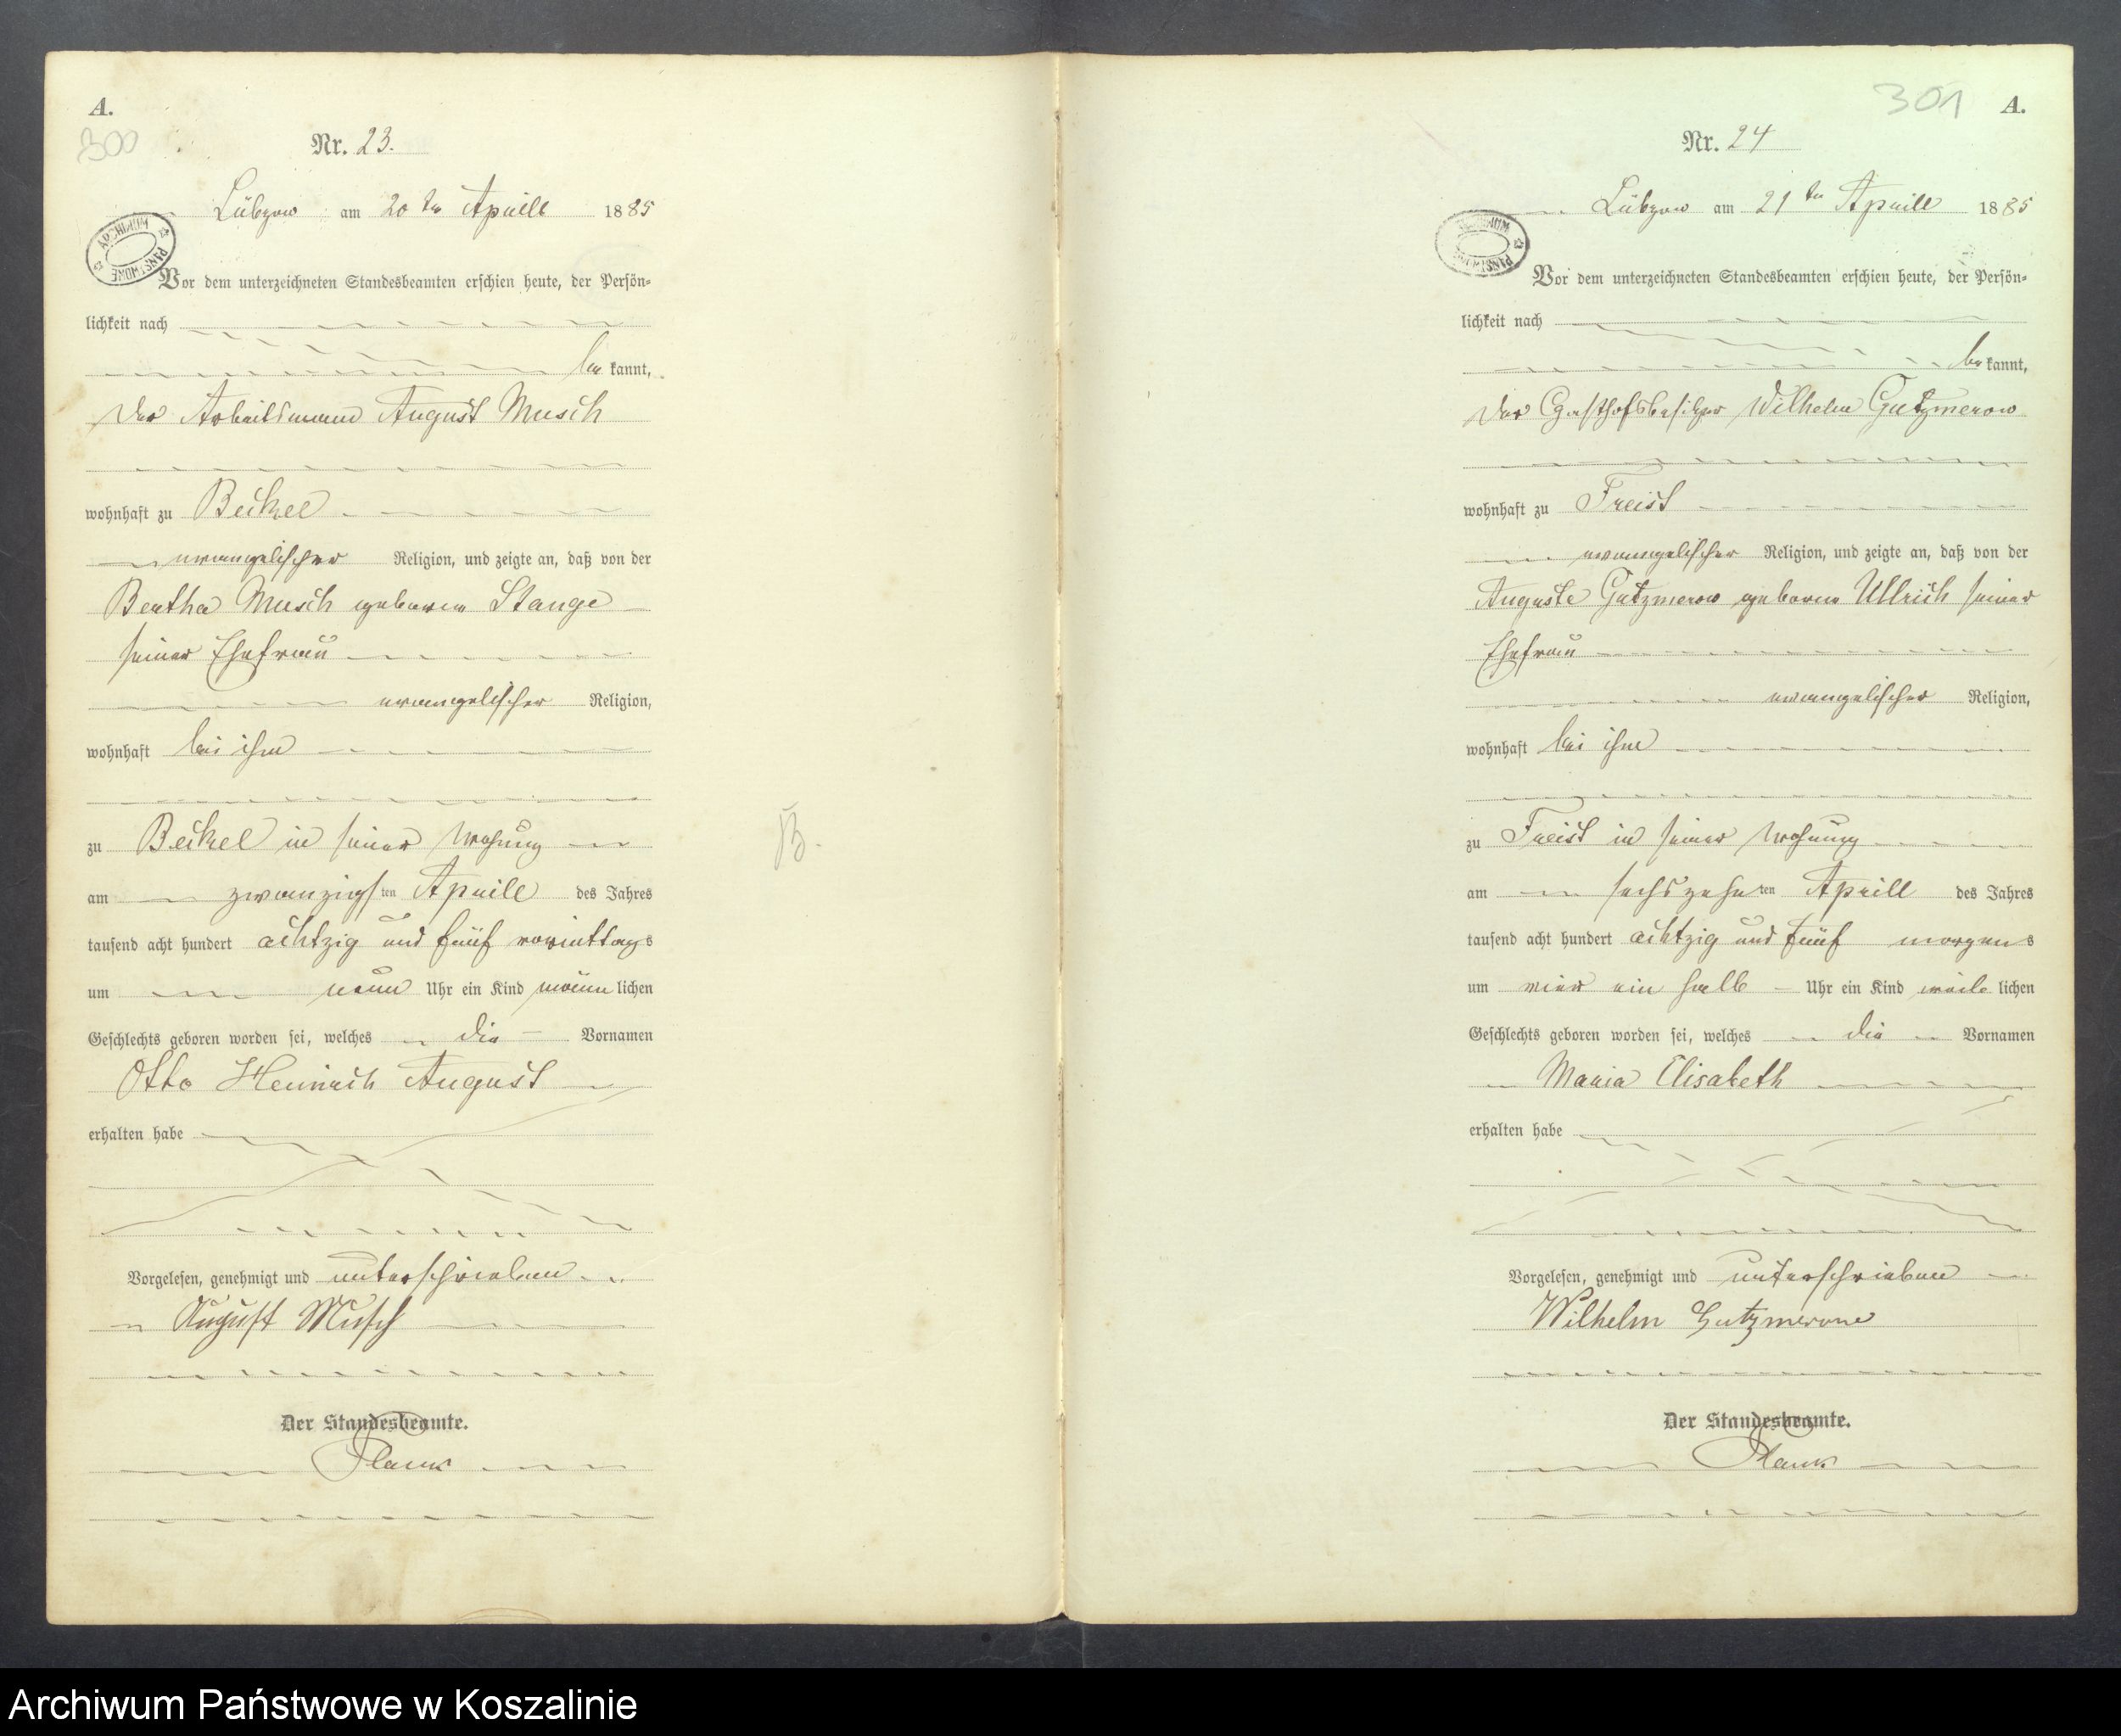 A.
300
Nr. 23.
Lübzow am 20 ten Aprill 1885
ARCHIWUM PAŃSTWOWE
Vor dem unterzeichneten Standesbeamten erschien heute, der Persön-
lichkeit nach
be kannt,
Der Arbeitsmann August Musch
wohnhaft zu Beckel
evangelischer Religion, und zeigte an, daß von der
Bertha Musch geborne Stange
seiner Ehefrau
evangelischer Religion,
wohnhaft bei ihm
zu Beckel in seiner Wohnung
am zwanzigsten Aprill des Jahres
tausend acht hundert achtzig und fünf vormittags
um neun Uhr ein Kind männlichen
Geschlechts geboren worden sei, welches die Vornamen
Otto Heinrich August
erhalten habe
Vorgelesen, genehmigt und unterschrieben
August Musch
Der Standesbeamte.
B.
301
A.
Nr. 24
Lübzow am 21 ten Aprill 1885
ARCHIWUM PAŃSTWOWE
Vor dem unterzeichneten Standesbeamten erschien heute, der Persön-
lichkeit nach
be kannt,
Der Gasthofsbesitzer Wilhelm Gutzmerow
wohnhaft zu Freist
evangelischer Religion, und zeigte an, daß von der
Auguste Gutzmerow geborne Ullrich seiner
Ehefrau
evangelischer Religion,
wohnhaft bei ihm
zu Freist in seiner Wohnung
am sechszehnten Aprill des Jahres
tausend acht hundert achtzig und fünf morgens
um vier ein halb Uhr ein Kind weiblichen
Geschlechts geboren worden sei, welches die Vornamen
Maria Elisabeth
erhalten habe
Vorgelesen, genehmigt und unterschrieben
Wilhelm Gutzmerow
Der Standesbeamte.
Archiwum Państwowe w Koszalinie